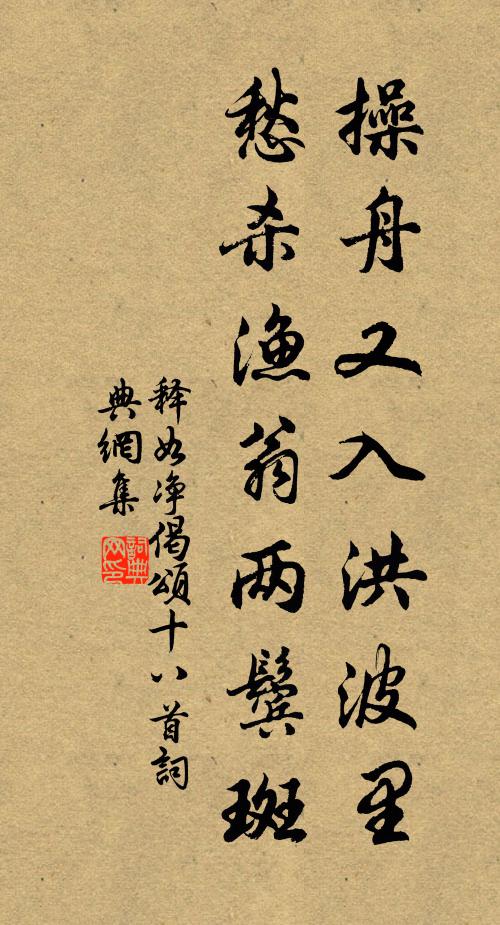 操舟又入洪波里
愁杀渔翁两鬓斑
释如净偈頌十八首詞
典網集
詞典网印